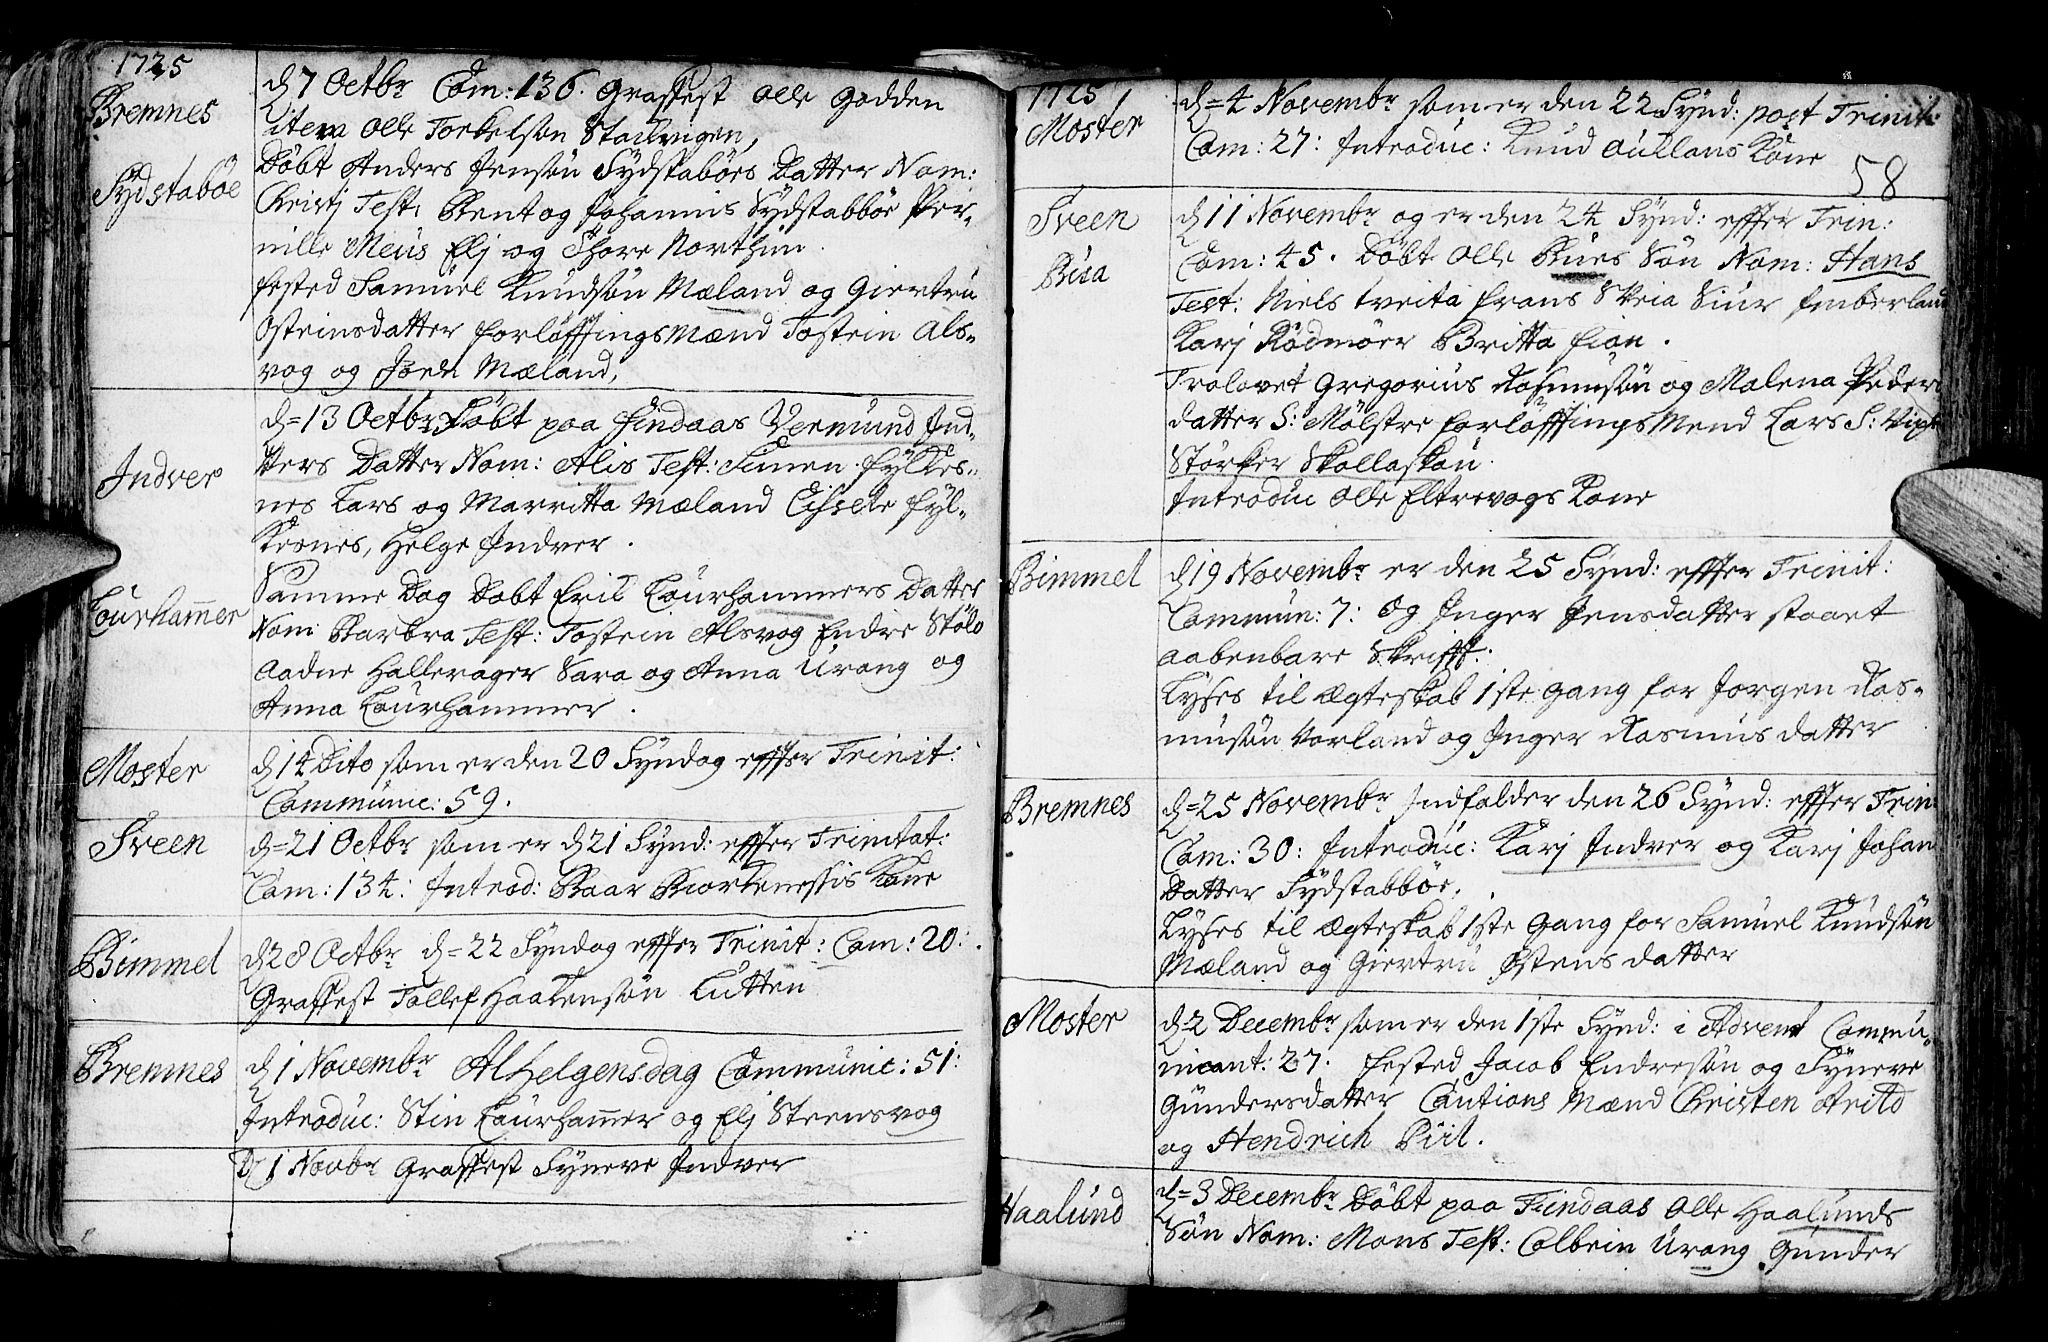 1725
Bremnes
d 7 Octbr Com: 136. Graffest Olle Godden
item Olle Torkelsøn Stadvigen,
Sydstabøe
Døbt Anders Jensøn Sydstabøes Datter Nom:
Christj Test: Bent og Johannis Sydstabbøe Per-
nille Meüs Elj og Thore Northün.
fested Samüel Knudsøn Mæland og Giertrü
Osteinsdatter forløfftingsMænd Tostein Als-
vog og Jørn Mæland,
d=13 Octbr Døbt paa Findaas Vermünd Ind-
Indver
vers Datter Nom: Alis Test: Simen fylkes-
nes Lars og Marritta Mæland Cissele fyl-
kesnes, Helge Indver.
Laürham̄er
Samme Dag Døbt Eril Laürhammers Datter
Nom: Barbra Test: Tostein Alsvog Endre Støle
Aadne Hallerager Sara og Anna Urang og
Anna Laürhammer.
Moster
d 14 Dito som er den 20 Syndag effter Trinit:
Commünic: 59.
Sveen
d=21 Octbr som er d 21 Synd: effter Trinitat:
Com: 134: Introd: Baar Biorkenessis Kone
Bømmel
d 28 Octbr d=22 Syndag effter Trinit: Com: 20:
Graffest Tollef Haakensøn Lütten
Bremnes
d 1 Novembr Alhelgensdag Communic: 51:
Introduc: Stin Laürham̄er og Elj Steensvog
d 1 Novbr Graffest Syneve Indver
1725
Moster
d=4 Novembr som er den 22 Synd: post Trinit:
Com: 27: Introduc: Knud Auklans Kone
58
Sveen
d 11 Novembr og er den 24 Synd: effter Trin:
Büa
Com: 45. Døbt Olle Büas Søn Nom: Hans
Test: Niels tveita frans Skeia Siur Imberland
Karj Rødmøer Britta fion.
Trolovet Gregorius Rasmusøn og Malena Peders
datter S: Mølstre forløfftings Mend Lars S:
Størker Skollaskou
Introduc Olle Eltrevogs Kone
Bømmel
d 19 Novembr er den 25 Synd: effter Trinit:
Commün: 7: og Inger Jensdatter staaet
aabenbare Skrifft:
Lyses til Ægteskab 1ste Gang for Jørgen Ras-
musøn Vorland og Inger Rasmus datter
Bremnes
d=25 Novembr Indfalder den 26 Synd: effter Trin
Com: 30: Introduc: Karj Indver og Karj Johan
Datter Sydstabbøe.
Lyses til Ægteskab 1ste Gang for Samuel Knudsøn
Mæland og Giertrü Østensdatter
Moster
d 2 Decembr som er den 1ste Synd: i Advent Commü-
nicant: 27. fested Jacob Endresøn og Syneve
Gündersdatter Cautions Mænd Christen Arild
og Hendrich Piil.
Haalünd
d=3 Decembr Døbt paa Findaas Olle Haalünds
Søn Nom: Mons Test: Colbein Urang Günder